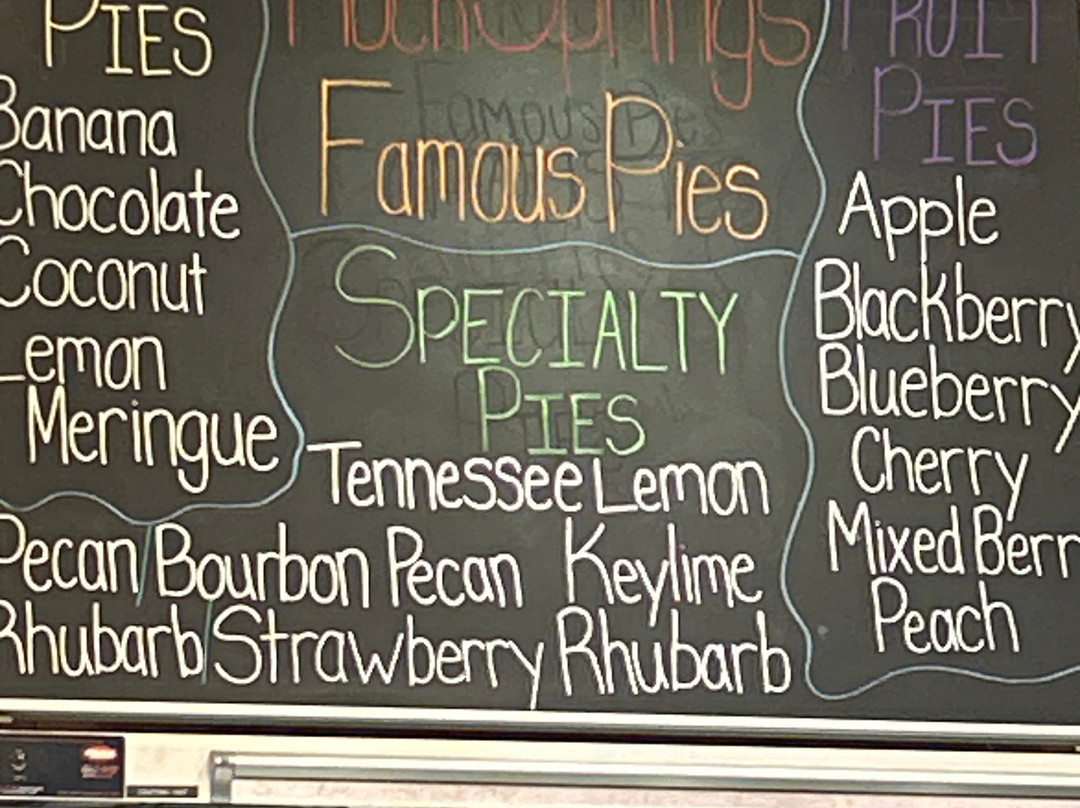 PIES
Banana
Chocolate
Coconut
Lemon
Meringue
Famous Pies
SPECIALTY
PIES
Tennessee Lemon
Pecan Bourbon Pecan Keylime
Rhubarb Strawberry Rhubarb
FRUIT
PIES
Apple
Blackberry
Blueberry
Cherry
Mixed Berr
Peach